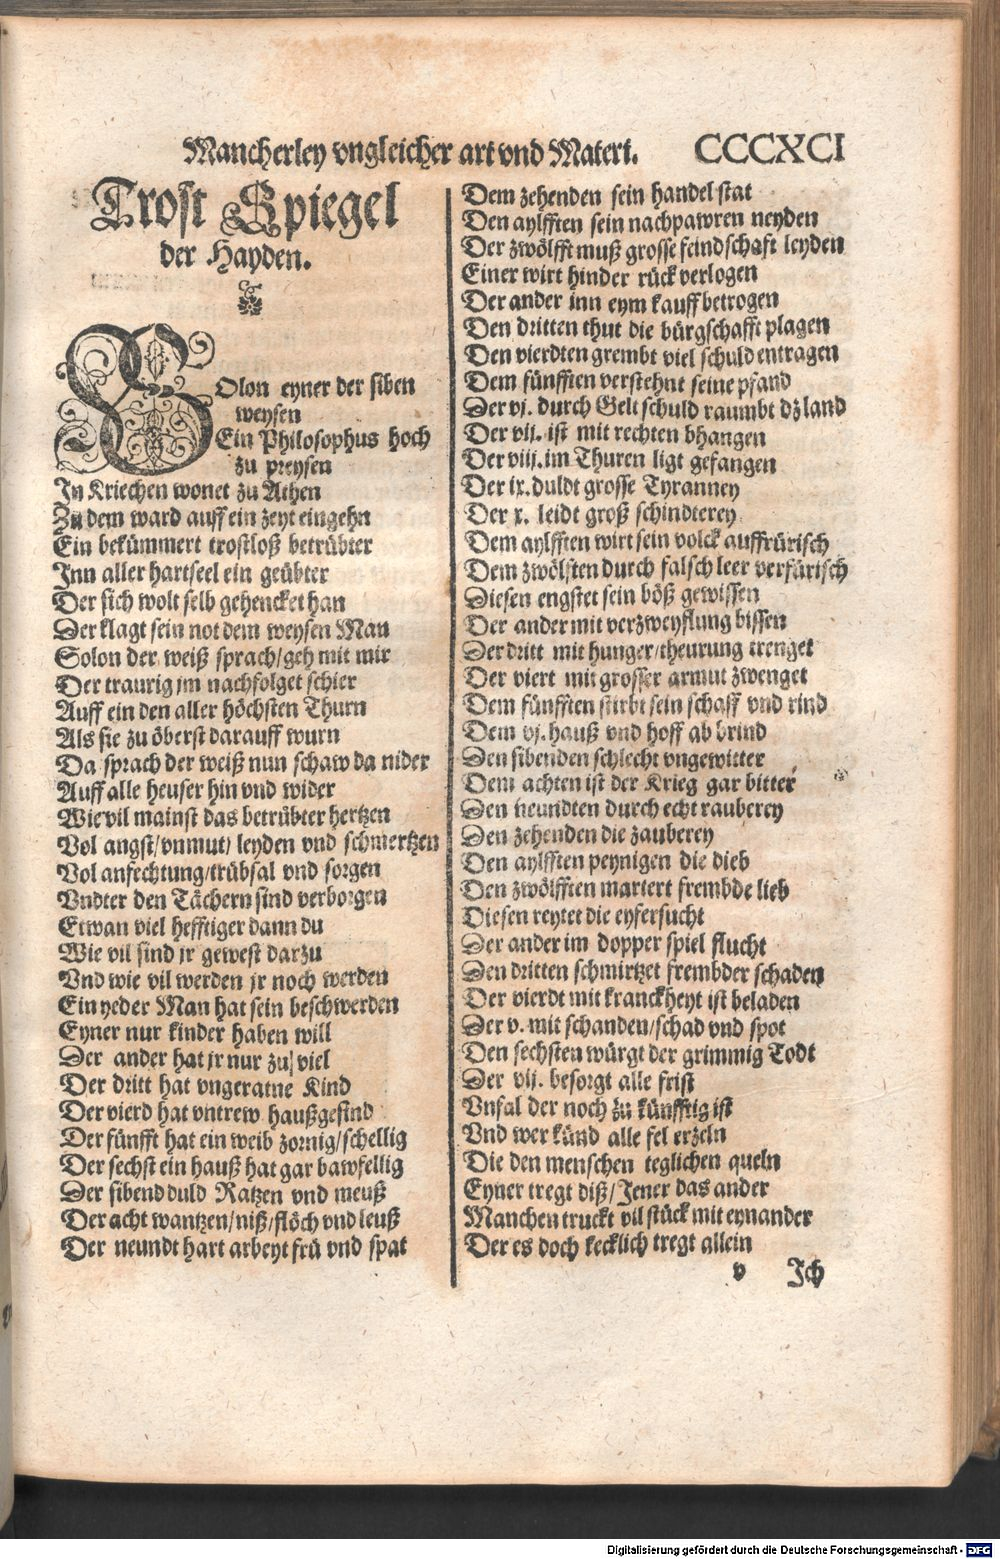 Mancherley vngleicher art vnd Materi. CCCXCI
Trost Spiegel
der Hayden.
SOlon eyner der siben
weysen
Ein Philosophus hoch
zu preysen
In Kriechen wonet zu Athen
Zu dem ward auff ein zeyt eingehn
Ein bekümmert trostloß betrübter
Inn aller hartseel ein geübter
Der sich wolt selb gehencket han
Der klagt sein not dem weysen Man
Solon der weiß sprach/geh mit mir
Der traurig jm nachfolget schier
Auff ein den aller höchsten Thurn
Als sie zu öberst darauff wurn
Da sprach der weiß nun schaw da nider
Auff alle heuser hin vnd wider
Wie vil mainst das betrübter hertzen
Vol angst/vnmut/ leyden vnd schmertzen
Vol anfechtung/trübsal vnd sorgen
Vndter den Tächern sind verborgen
Etwan viel hefftiger dann du
Wie vil sind jr gewest darzu
Vnd wie vil werden jr noch werden
Ein yeder Man hat sein beschwerden
Eyner nur kinder haben will
Der ander hat jr nur zu viel
Der dritt hat vngeratne Kind
Der vierd hat vntrew haußgesind
Der fünfft hat ein weib zornig/schellig
Der sechst ein hauß hat gar bawfellig
Der sibend duld Ratzen vnd meuß
Der acht wantzen/niß/flöch vnd leuß
Der neundt hart arbeyt frü vnd spat
Dem zehenden sein handel stat
Den aylfften sein nachpawren neyden
Der zwölfft muß grosse feindschaft leyden
Einer wirt hinder rück verlogen
Der ander inn eym kauff betrogen
Den dritten thut die bürgschafft plagen
Den vierdten grembt viel schuld entragen
Dem fünfften verstehnt seine pfand
Der vj. durch Gelt schuld raumbt dz land
Der vij. ist mit rechten bhangen
Der viij. im Thuren ligt gefangen
Der ix. duldt grosse Tyranney
Der x. leidt groß schindterey
Dem aylfften wirt sein volck auffrürisch
Dem zwölften durch falsch leer verfürisch
Diesen engstet sein böß gewissen
Der ander mit verzweyflung bissen
Der dritt mit hunger/theurung trenget
Der viert mit grosser armut zwenget
Dem fünfften stirbt sein schaff vnd rind
Dem vj. hauß vnd hoff ab brind
Den sibenden schlecht vngewitter
Dem achten ist der Krieg gar bitter
Den neundten durch echt rauberey
Den zehenden die zauberey
Den aylfften peynigen die dieb
Den zwölfften martert frembde lieb
Diesen reytet die eyfersucht
Der ander im dopper spiel flucht
Den dritten schmirtzet frembder schaden
Der vierdt mit kranckheyt ist beladen
Der v. mit schanden/schad vnd spot
Den sechsten würgt der grimmig Todt
Der vij. besorgt alle frist
Vnfal der noch zu künfftig ist
Vnd wer künd alle fel erzeln
Die den menschen teglichen queln
Eyner tregt diß/Jener das ander
Manchen truckt vil stück mit eynander
Der es doch kecklich tregt allein
v Ich
Digitalisierung gefördert durch die Deutsche Forschungsgemeinschaft - DFG